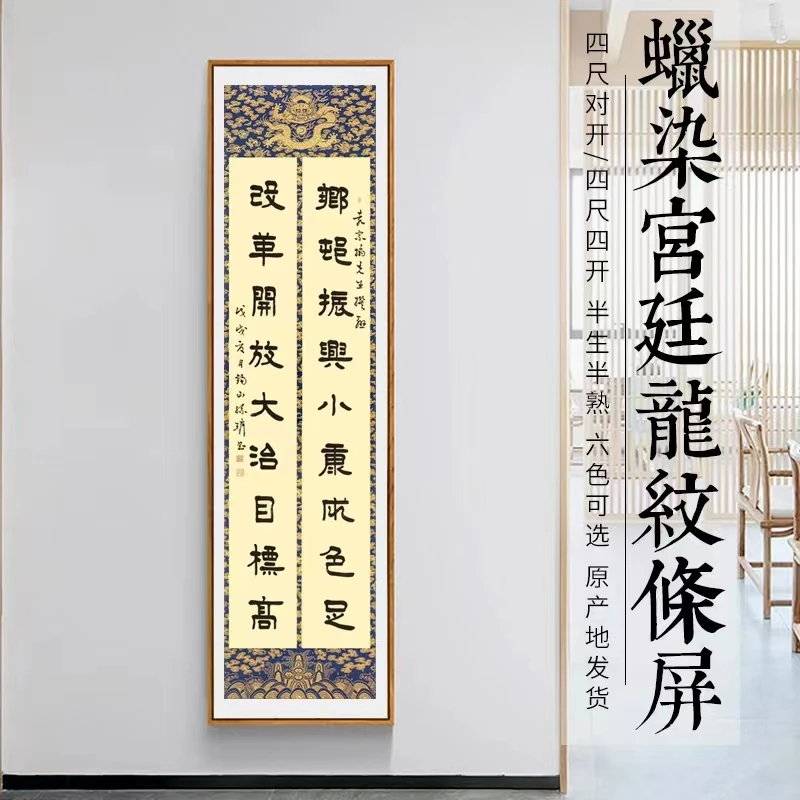 蠟染宮廷龍紋條屏
四尺对开/四尺四开 半生半熟 六色可选 原产地发货
鄉邨振興小康成色足
改革開放大治目標高
先生撰联
戊戌夏月